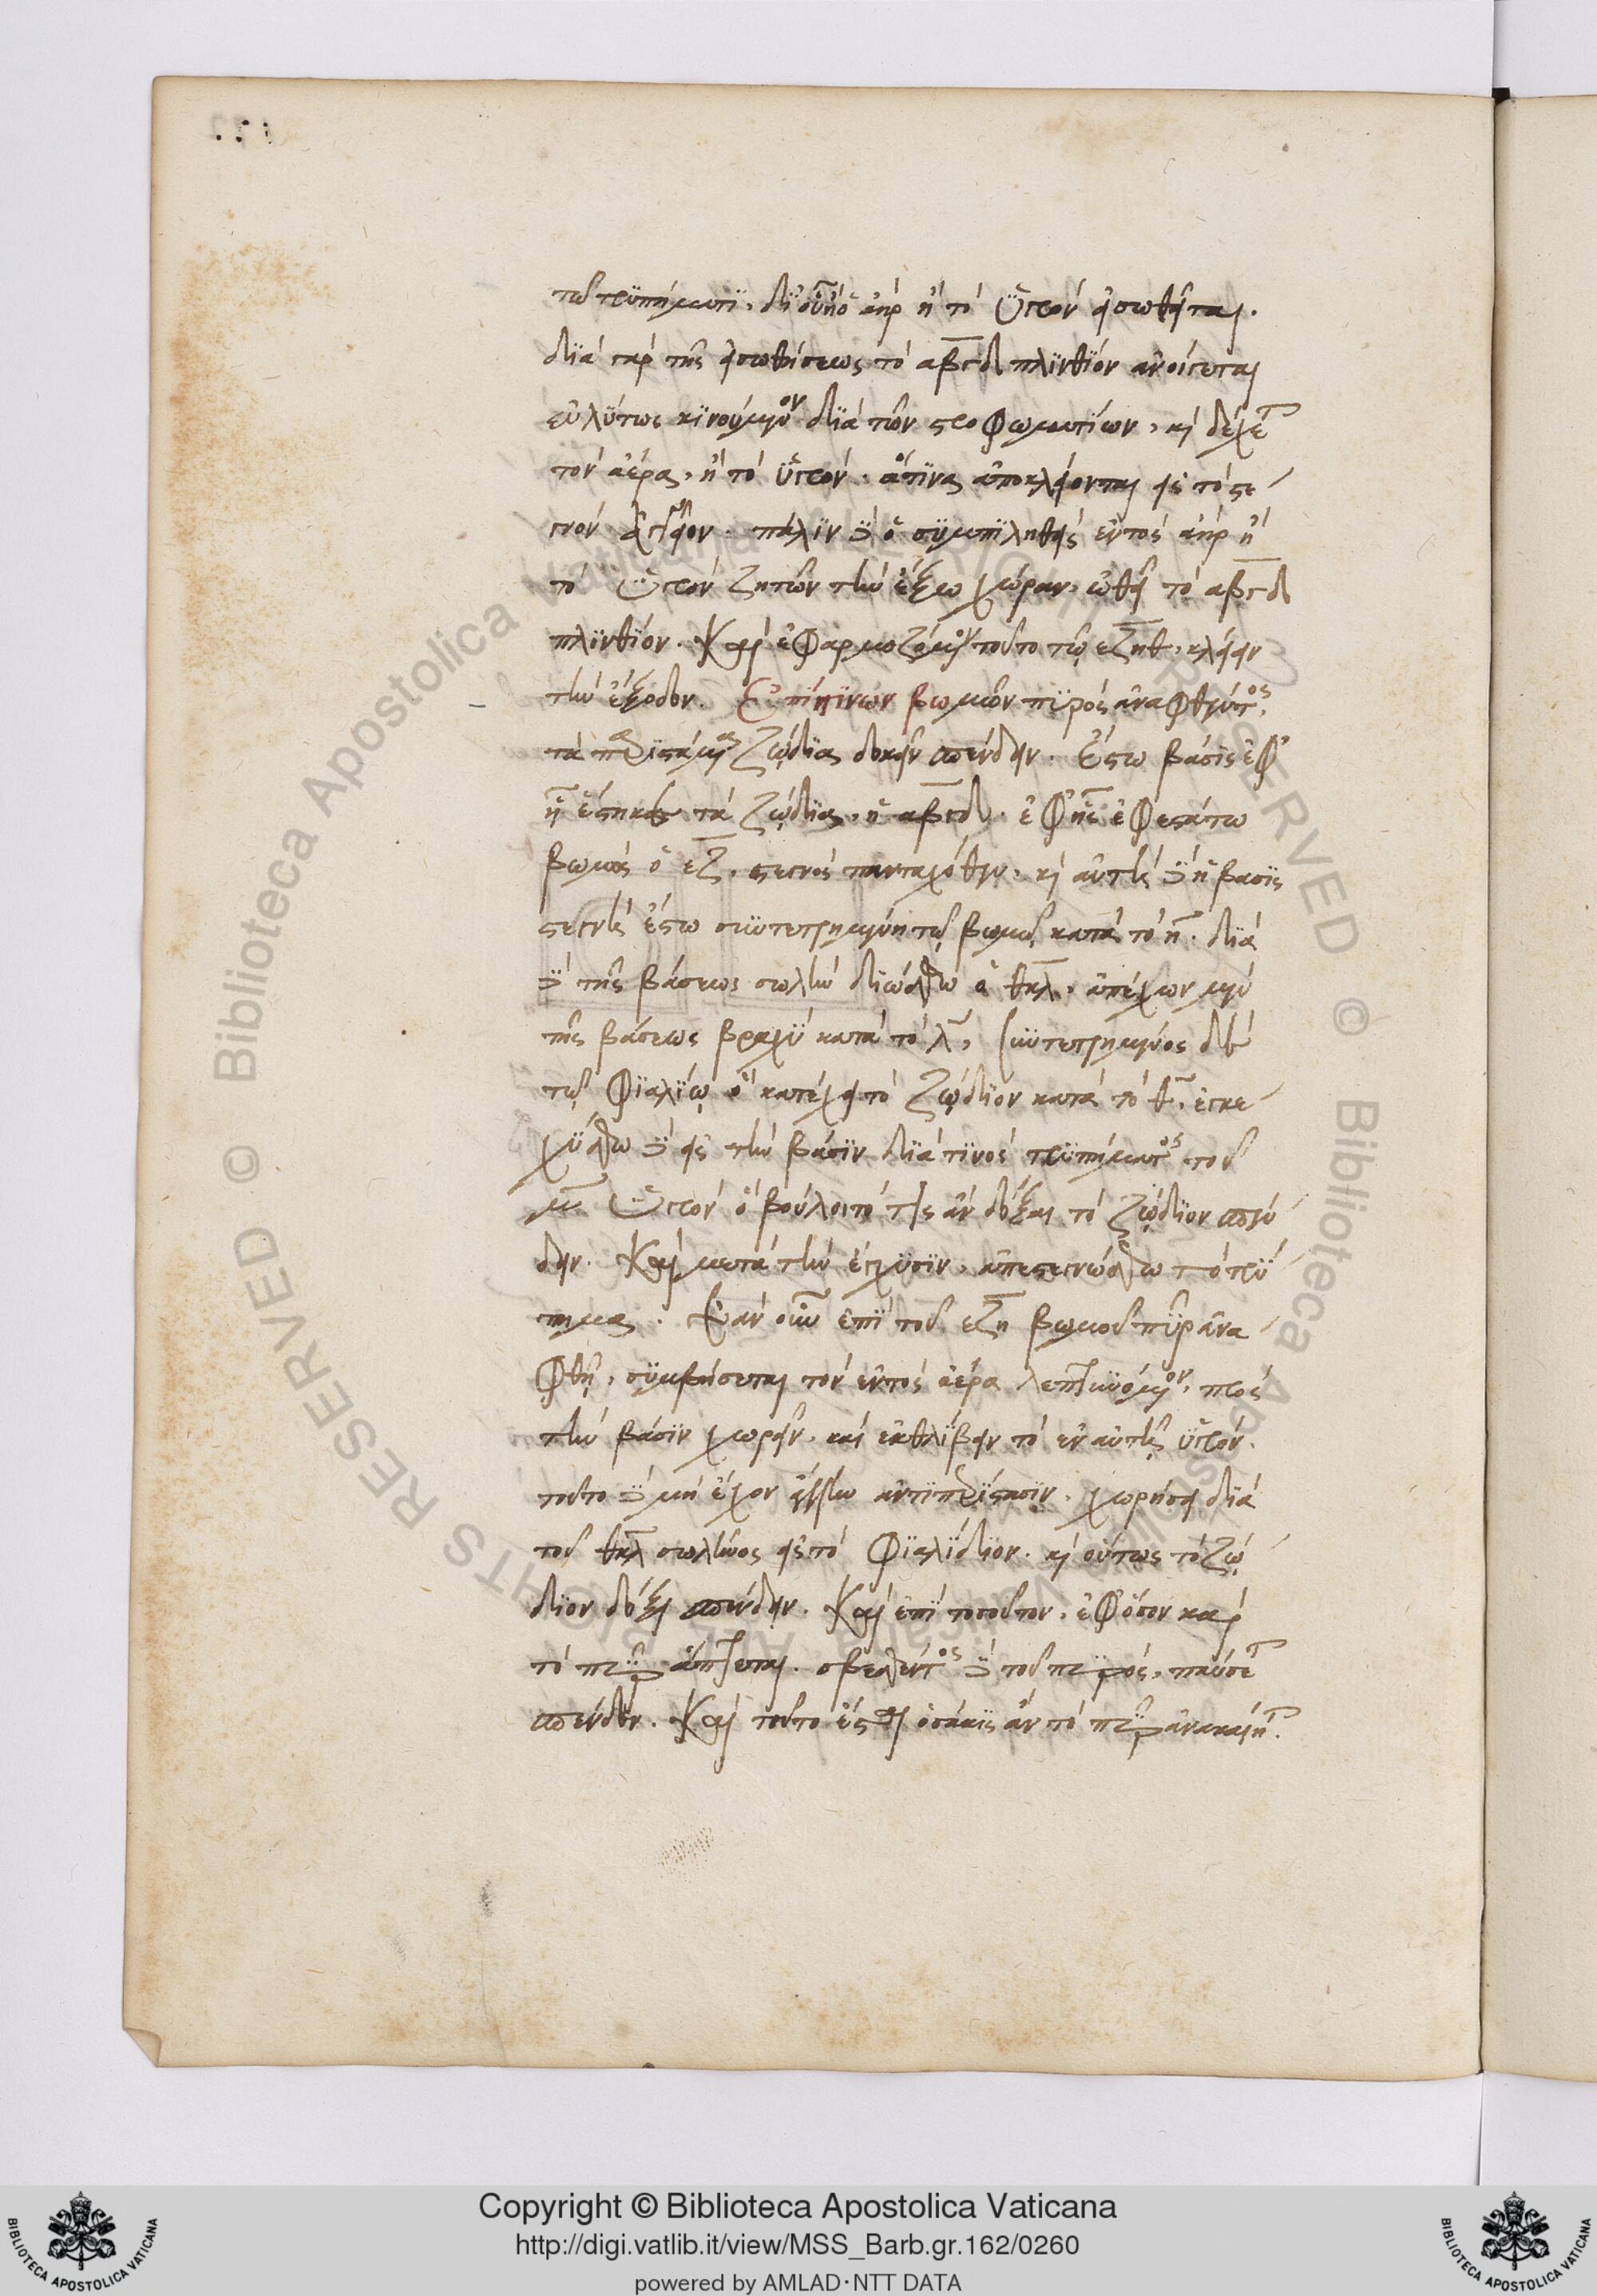 τῶ τρυπήματι, δι οὗ ὁ ἀὴρ ἢ τὸ ὑγρὸν εἰσωθεῖται.
διὰ γὰρ τῆς εἰσωθήσεως τὸ αβγδ πλινθίον ἀνοίγεται
εὐλύτως κινούμενον διὰ τῶν στροφωματίων, καὶ δέχεται
τὸν ἀέρα, ἢ τὸ ὑγρόν. ἅτινα ἀποκλείονται εἰς τὸ στε
γνὸν ἀγγεῖον. πάλιν δὲ ὁ συμπιληθεὶς ἐντὸς ἀὴρ ἢ
τὸ ὑγρὸν ζητῶν τὴν ἔξω χώραν, ὠθεῖ τὸ αβγδ
πλινθίον. Καὶ ἐφαρμοζόμενον τοῦτο τῷ εζηθ, κλείειν
τὴν ἔξοδον. Ἐπί τινων βωμῶν πυρὸς ἀναφθέντος,
τὰ παριστάμενα ζώδια δοκεῖν σπένδειν. Ἔστω βάσις ἐφ
ἧ ἕστηκε τὰ ζώδια, ἡ αβγδ. ἐφ ἧς ἐφεστάτω
βωμὸς ὁ εζ, στεγνὸς πανταχόθεν, καὶ αὐτὴ δὲ ἡ βάσις
στεγνὴ ἔστω συντετρημένη τῷ βωμῷ κατὰ τὸ η. διὰ
δὲ τῆς βάσεως σωλὴν διώσθω ὁ θκλ, ἀπέχων μὲν
τῆς βάσεως βραχὺ κατὰ τὸ λ, συντετρημένος δὲ
τῷ φιαλίῳ ὃ κατέχει τὸ ζώδιον κατὰ τὸ θ, ἐγκε
χύσθω δὲ εἰς τὴν βάσιν διά τινος τρυπήματος τοῦ
μ ὑγρὸν ὃ βούλοιτό τις ἂν δόξαι τὸ ζώδιον σπέν
δειν. Καὶ μετὰ τὴν ἔγχυσιν, ἀπεστεγνώσθω τὸ τρύ
πημα. Ἐὰν οὖν ἐπὶ τοῦ εζη βωμοῦ πῦρ ἀνα
φθῇ, συμβήσεται τὸν ἐντὸς ἀέρα λεπτυνόμενον, πρὸς
τὴν βάσιν χωρεῖν, καὶ ἐκθλίβειν τὸ ἐν αὐτῇ ὑγρόν.
τοῦτο δὲ μὴ ἔχον ἄλλην ἀντιπερίστασιν, χωρήσει διὰ
τοῦ θκλ σωλῆνος εἰς τὸ φιαλίδιον. καὶ οὕτως τὸ ζώ
διον δόξει σπένδειν. Καὶ ἐπὶ τοσοῦτον, ἐφόσον καὶ
τὸ πῦρ ἅπτεται. σβεσθέντος δὲ τοῦ πυρός, παύσεται
σπένδον. Καὶ τοῦτο ἔσται ὁσάκις ἂν τὸ πῦρ ἀνακαίηται.
Copyright © Biblioteca Apostolica Vaticana
http://digi.vatlib.it/view/MSS_Barb.gr.162/0260
powered by AMLAD·NTT DATA